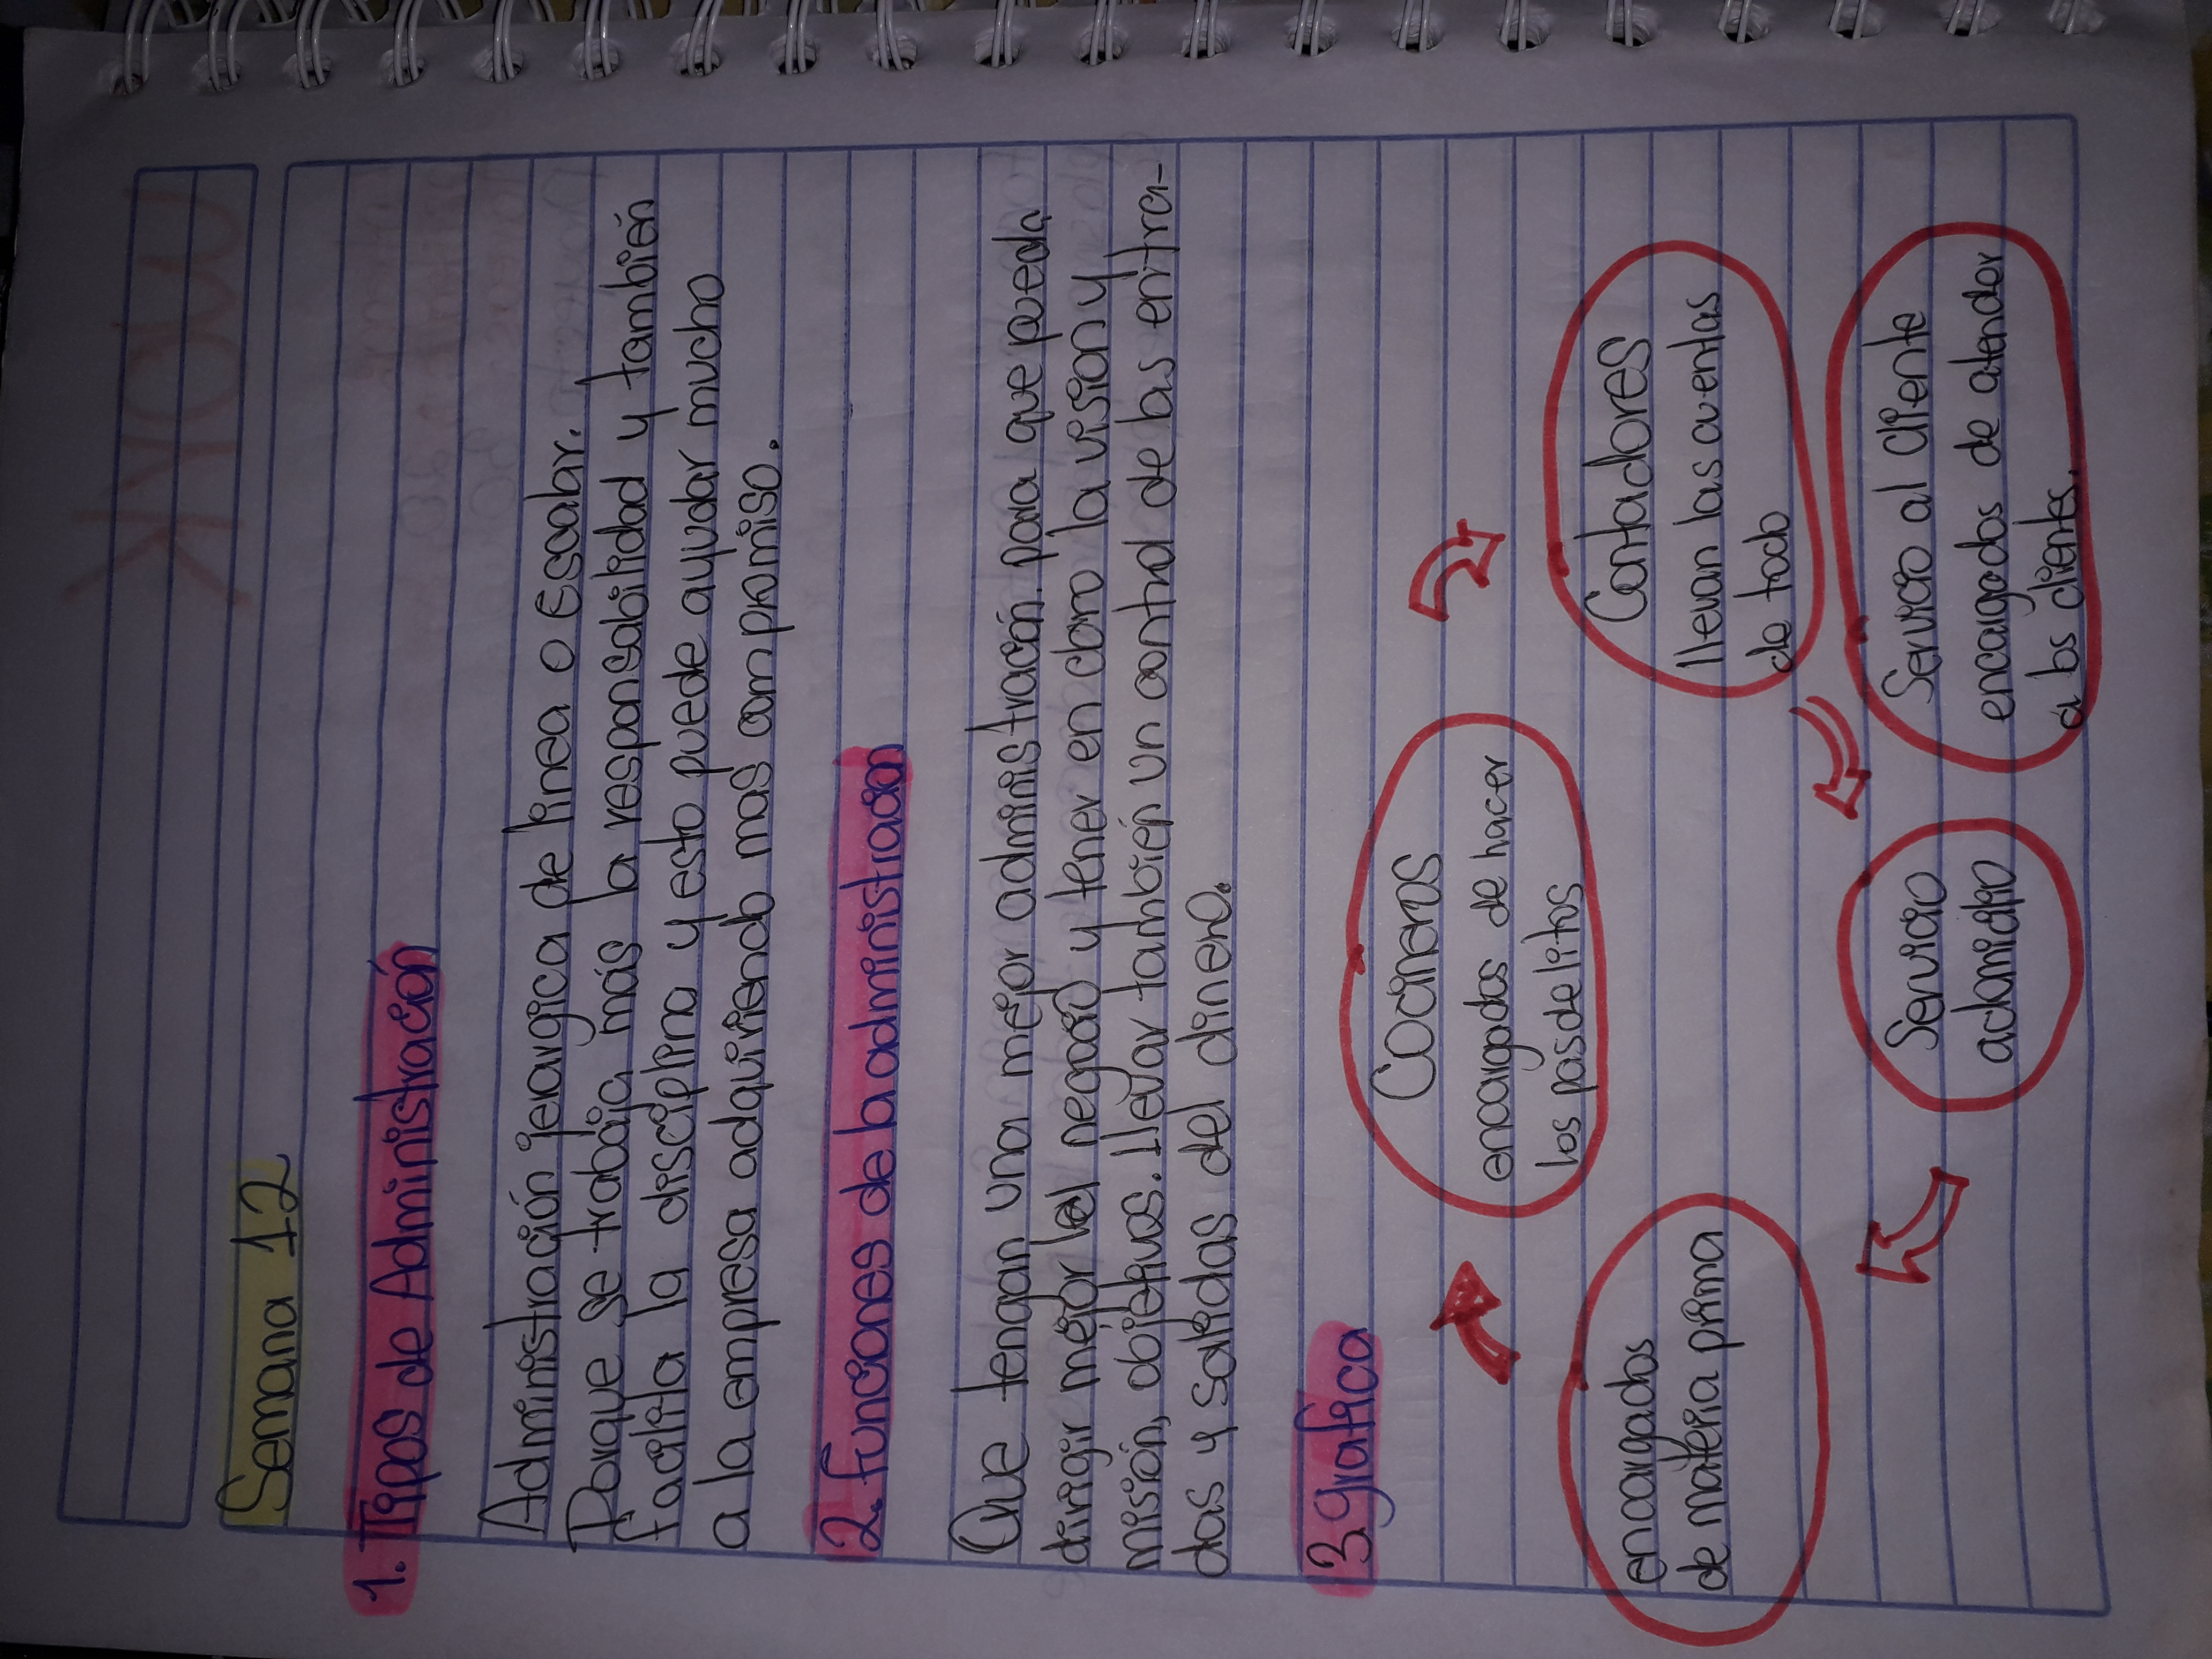 Semana 12
1. Tipos de Administración
Administración jerargica de linea o Escalar.
Porque se trabaja más la responsabilidad y también
facilita la disciplina y esto puede ayudar mucho
a la empresa adquiriendo mas compromiso.
2. Funciones de la administracion
Que tengan una mejor administración. para que pueda
dirigir mejor el negocio y tener en claro la vision y
misión, objetivos. llevar también un control de las entra-
das y salidas del dinero.
3 grafica
Cocineros
encargados de hacer
los pasdelitos
encargados
de materia prima
Contadores
llevan las cuentas
de todo
Servicio
adomicilio
Servicio al cliente
encargados de atender
a los clientes.